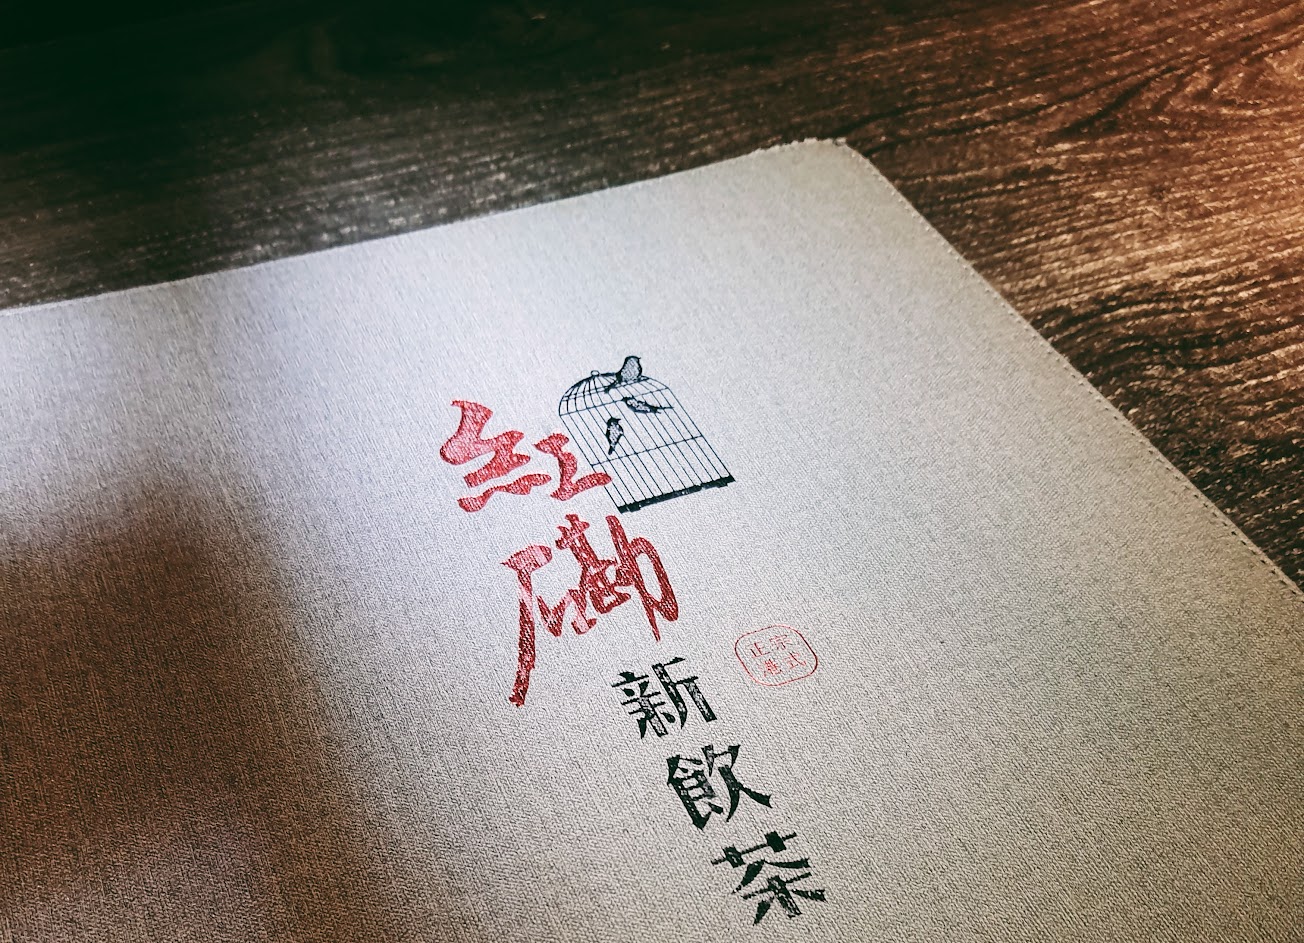 紅磡
新飲茶
正宗
港式